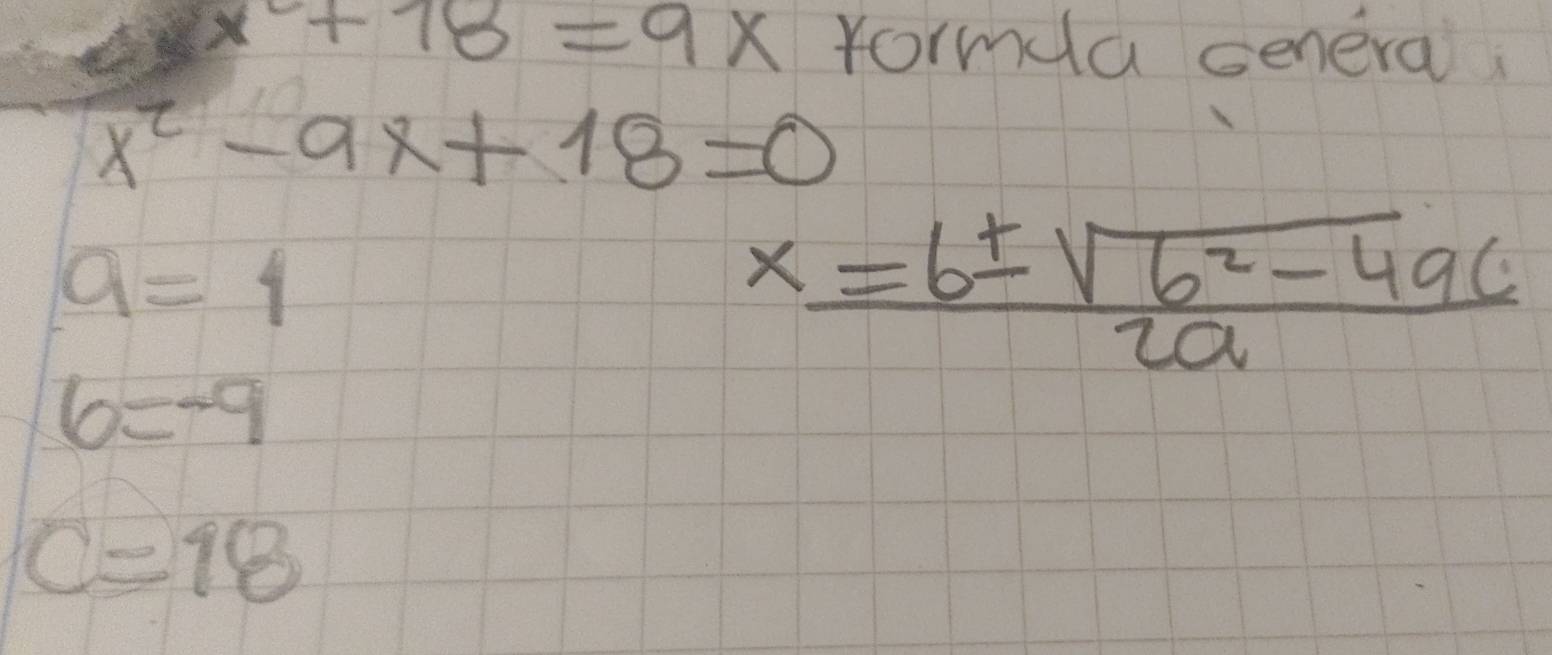 x² + 18 = 9x formula general
x² - 9x + 18 = 0
a = 1
x = b ± √b² - 4ac
2a
b = -9
c = 18